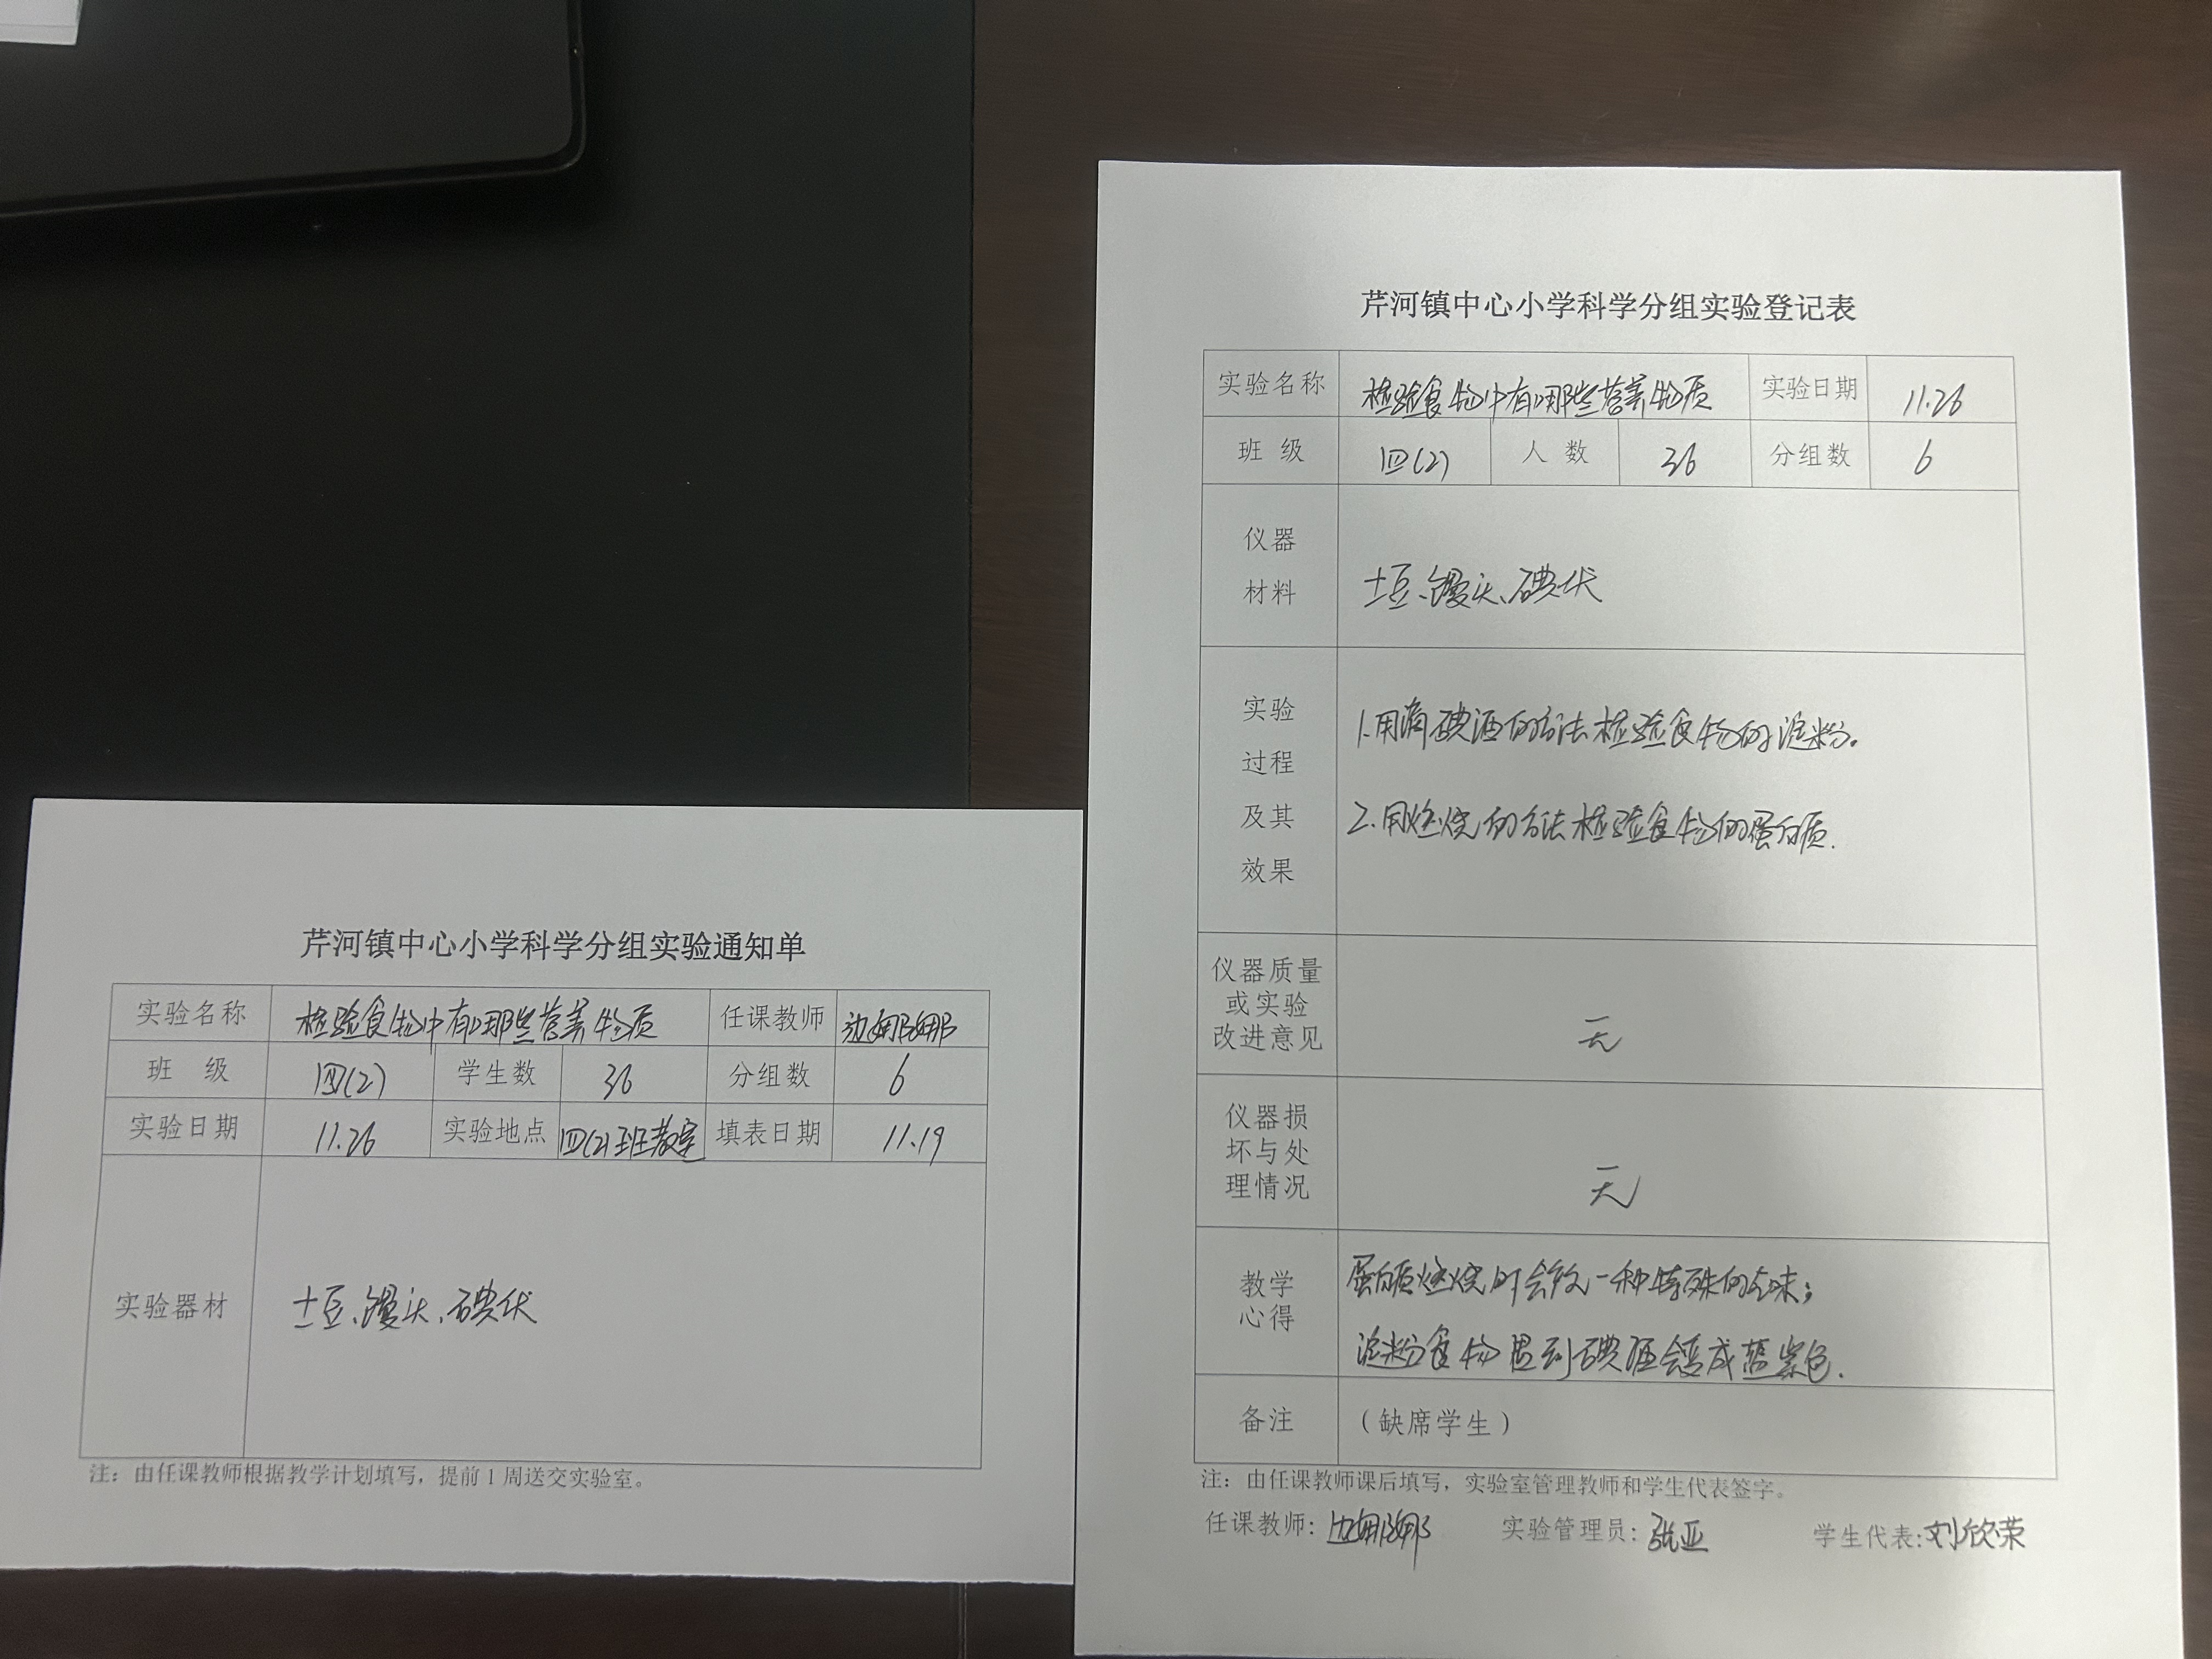 芹河镇中心小学科学分组实验通知单
实验名称 检验食物中有哪些营养物质 任课教师 边娜娜
班 级 四(2) 学生数 36 分组数 6
实验日期 11.26 实验地点 四(2)班教室 填表日期 11.19
实验器材 土豆、馒头、碘伏
注：由任课教师根据教学计划填写，提前1周送交实验室。
芹河镇中心小学科学分组实验登记表
实验名称 检验食物中有哪些营养物质 实验日期 11.26
班 级 四(2) 人 数 36 分组数 6
仪器
材料
土豆、馒头、碘伏
实验
过程
及其
效果
1.用滴碘酒的方法检验食物的淀粉。
2.用燃烧的方法检验食物的蛋白质.
仪器质量
或实验
改进意见
无
仪器损
坏与处
理情况
无
教学
心得
蛋白质燃烧时会有一种特殊的气味；
淀粉食物遇到碘酒会变成蓝紫色.
备注 （缺席学生）
注：由任课教师课后填写，实验室管理教师和学生代表签字。
任课教师：边娜娜 实验管理员：张亚 学生代表：刘欣荣